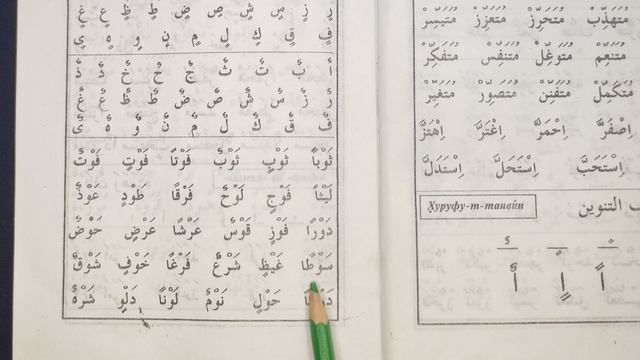 رٍ زٍ سٍ شٍ صٍ ضٍ طٍ ظٍ عٍ غٍ
فٍ قٍ كٍ لٍ مٍ نٍ وٍ هٍ ىٍ
أٌ بٌ تٌ ثٌ جٌ حٌ خٌ دٌ ذٌ
رٌ زٌ سٌ شٌ صٌ ضٌ طٌ ظٌ عٌ غٌ
فٌ قٌ كٌ لٌ مٌ نٌ وٌ هٌ ىٌ
ثَوْبًا ثَوْبٍ ثَوْبٌ فَوْتًا فَوْتٍ فَوْتٌ
لَيْثًا فَوْجٍ لَوْحٌ فَرْقًا طَوْدٍ عَوْذٌ
دَوْرًا فَوْزٍ قَوْسٌ عَرْشًا عَرْضٍ حَوْضٌ
سَوْطًا غَيْظٍ شَرْعٌ فَرْغًا خَوْفٍ شَوْقٌ
حَوْلٍ نَوْمٌ لَوْنًا دَلْوٍ شَرْهٌ
مُتَهَذِّبْ مُتَحَرِّزْ مُتَعَزِّزْ مُتَيَسِّرْ
مُتَنَعِّمْ مُتَوَغِّلْ مُتَنَفِّسْ مُتَفَكِّرْ
مُتَكَمِّلْ مُتَفَنِّنْ مُتَصَوِّرْ مُتَغَيِّرْ
اِصْفَرَّ اِحْمَرَّ اِغْتَرَّ اِهْتَزَّ
اِسْتَحَبَّ اِسْتَحَلَّ اِسْتَدَلَّ
التنوين Хуруфу-т-танвӣн
ـًـ ـٍـ ـٌـ
أً إٍ أٌ